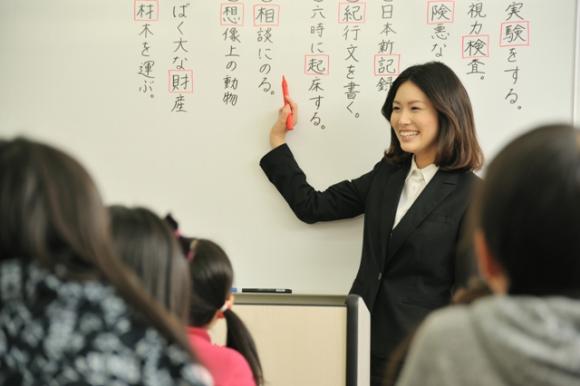 実験をする。
視力検査。
険悪な
日本新記録
紀行文を書く。
六時に起床する。
相談にのる。
想像上の動物
ばく大な財産
材木を運ぶ。